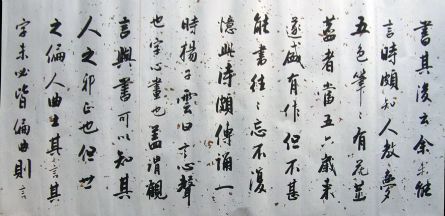 書其後云余未能
言時頗知人教夢
五色筆〻有花並
蓋者當五六歲來
遂盛有作但不甚
能書往〻忘不復
憶頗傳誦一
時揚子雲曰言心聲
也字心畫也蓋謂觀
言與書可以知其
人之邪正也但世
之偏人曲士其言其
字未必皆偏曲則言